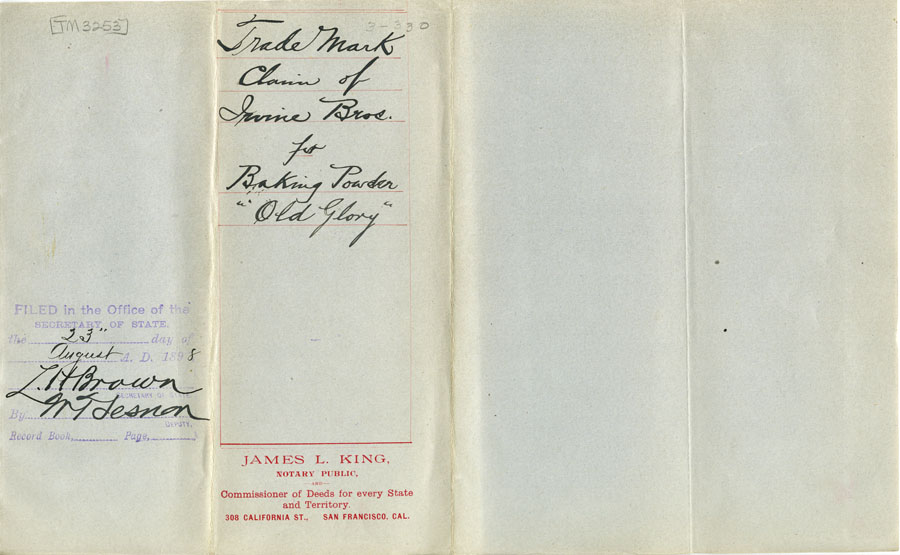 [TM3253]
3-330
Trade Mark
Claim of
Irvine Bros.
for
Baking Powder
"Old Glory"
FILED in the Office of the
SECRETARY OF STATE,
the 23" day of
August A. D. 1898
L. H. Brown
SECRETARY OF STATE
By
DEPUTY.
Record Book, Page,
JAMES L. KING,
NOTARY PUBLIC,
—AND—
Commissioner of Deeds for every State
and Territory.
308 CALIFORNIA ST., SAN FRANCISCO, CAL.